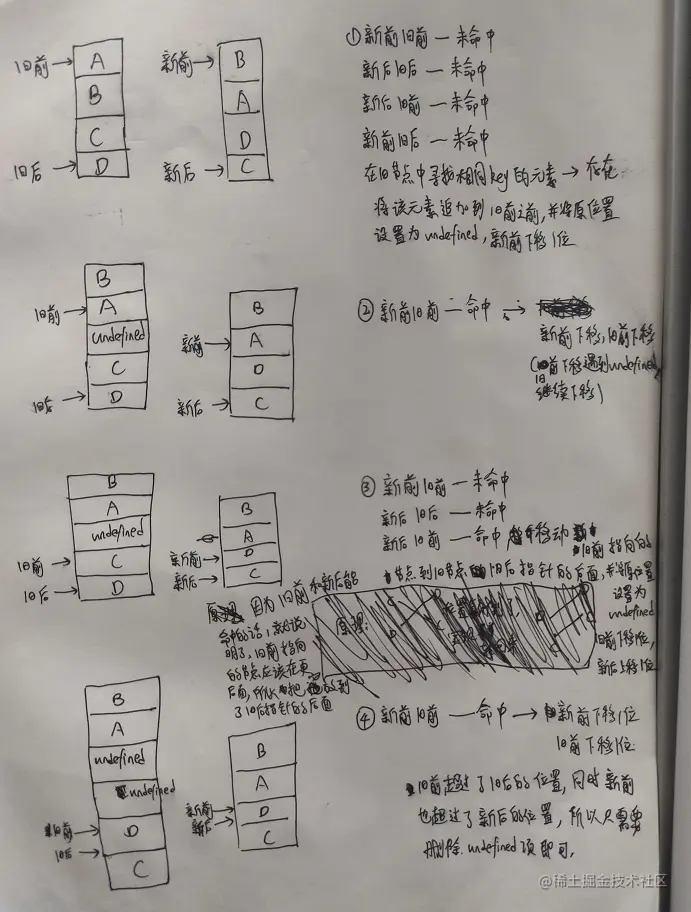 旧前 A
B
C
旧后 D
新前 B
A
D
新后 C
① 新前旧前 — 未命中
新后旧后 — 未命中
新后旧前 — 未命中
新前旧后 — 未命中
在旧节点中寻找相同key的元素 → 存在
将该元素追加到旧前之前,并将原位置
设置为undefined,新前下移1位
B
旧前 A
undefined
C
旧后 D
B
新前 A
D
新后 C
② 新前旧前 — 命中 →
新前下移,旧前下移
(旧前下移遇到undefined,
继续下移)
B
A
undefined
旧前 C
旧后 D
B
A
新前 D
新后 C
③ 新前旧前 — 未命中
新后旧后 — 未命中
新后旧前 — 命中 移动旧前指向的
节点到旧节点旧后指针的后面,并将原位置
设置为
undefined
旧前下移1位,
新后上移1位
因为旧前和新后能
命中的话,就说
明了,旧前指向
的节点应该在更
后面,所以把放到
了旧后指针的后面
原理:
B
A
undefined
undefined
旧前 D
旧后
C
B
A
新前 D
新后
C
④ 新前旧前 — 命中 → 新前下移1位
旧前下移1位
旧前超过了旧后的位置,同时新前
也超过了新后的位置,所以只需要
删除undefined项即可.
@稀土掘金技术社区